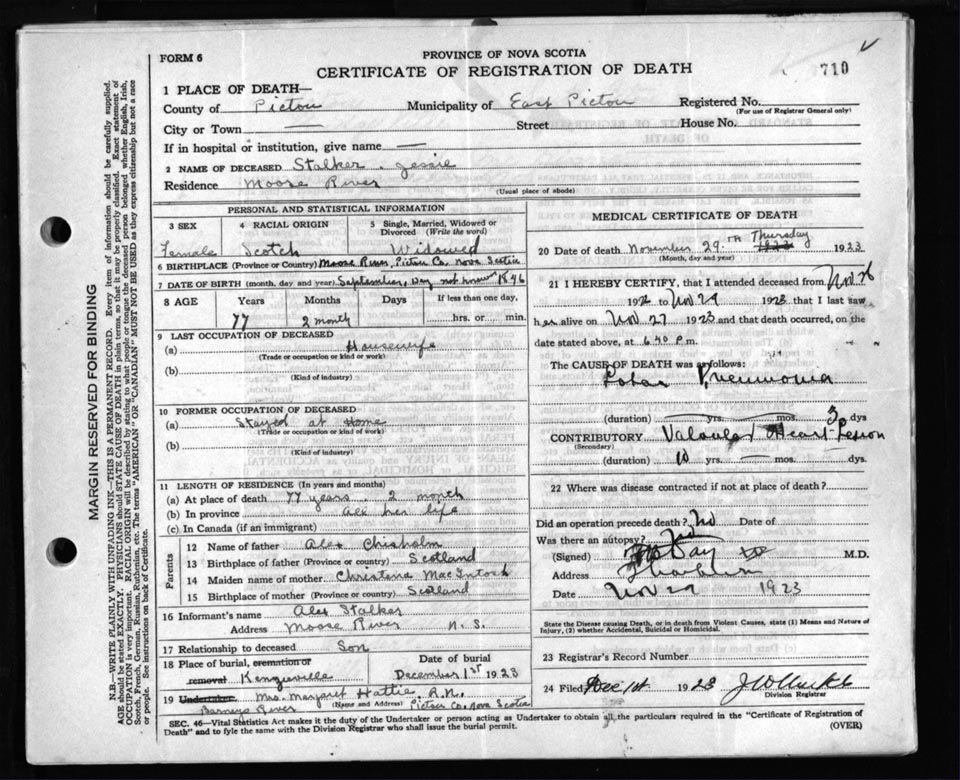 FORM 6
PROVINCE OF NOVA SCOTIA
CERTIFICATE OF REGISTRATION OF DEATH
710
1 PLACE OF DEATH—
County of Pictou Municipality of East Pictou Registered No.
(For use of Registrar General only)
City or Town — Street House No.
If in hospital or institution, give name —
2 NAME OF DECEASED Stalker. Jessie
Residence Moose River
(Usual place of abode)
PERSONAL AND STATISTICAL INFORMATION
3 SEX 4 RACIAL ORIGIN 5 Single, Married, Widowed or Divorced (Write the word)
Female Scotch Widowed
6 BIRTHPLACE (Province or Country) Moose River, Pictou Co. Nova Scotia
7 DATE OF BIRTH (month, day and year) September, Day not known 1846
8 AGE Years Months If less than one day,
77 2 month hrs. or min.
9 LAST OCCUPATION OF DECEASED
(a) Housewife
(Trade or occupation or kind or work)
(b)
(Kind of industry)
10 FORMER OCCUPATION OF DECEASED
(a) Stayed at Home
(Trade or occupation or kind of work)
(b)
(Kind of industry)
11 LENGTH OF RESIDENCE (In years and months)
(a) At place of death 77 years. 2 month
(b) In province all her life
(c) In Canada (if an immigrant)
Parents
12 Name of father Alex Chisholm
13 Birthplace of father (Province or country) Scotland
14 Maiden name of mother Christena MacIntosh
15 Birthplace of mother (Province or country) Scotland
16 Informant's name Alex Stalker
Address Moose River N. S.
17 Relationship to deceased Son
18 Place of burial, cremation or removal Kenzieville Date of burial December 1st 1923
19 Undertaker. Mrs. Margaret Hattie, R.N.
Barneys River (Name and Address) Pictou Co, Nova Scotia
MEDICAL CERTIFICATE OF DEATH
20 Date of death November 29.TH Thursday 1923
(Month, day and year)
21 I HEREBY CERTIFY, that I attended deceased from Nov 26
192 to Nov 29 1923 that I last saw
her alive on Nov 27 1923 and that death occurred, on
date stated above, at 6.40 P.m.
The CAUSE OF DEATH was as follows:
Lobar Pneumonia
(duration) yrs. mos. 3 dys
CONTRIBUTORY Valvular Heart Lesion
(Secondary)
(duration) 10 yrs. mos. dys.
22 Where was disease contracted if not at place of death?
Did an operation precede death? No Date of
Was there an autopsy? No
(Signed) Day M.D.
Address
Date Nov 29 1923
State the Disease causing Death, or in death from Violent Causes, state (1) Means and Nature of Injury, (2) whether Accidental, Suicidal or Homicidal.
23 Registrar's Record Number
24 Filed Dec 1st 1923
Division Registrar
SEC. 46—Vital Statistics Act makes it the duty of the Undertaker or person acting as Undertaker to obtain all the particulars required in the "Certificate of Registration of
Death" and to fyle the same with the Division Registrar who shall issue the burial permit. (OVER)
MARGIN RESERVED FOR BINDING
N.B.—WRITE PLAINLY WITH UNFADING INK—THIS IS A PERMANENT RECORD. Every item of information should be carefully supplied.
AGE should be stated EXACTLY. PHYSICIANS should STATE CAUSE OF DEATH in plain terms, so that it may be properly classified. Exact statement of
OCCUPATION is very important. RACIAL ORIGIN will be described by stating to what people or tongue the deceased person belonged whether English, Irish,
Scotch, French, German, Russian, Ruthenian, etc. The terms "AMERICAN" OR "CANADIAN" MUST NOT BE USED as they express citizenship but not a race
or people. See instructions on back of Certificate.